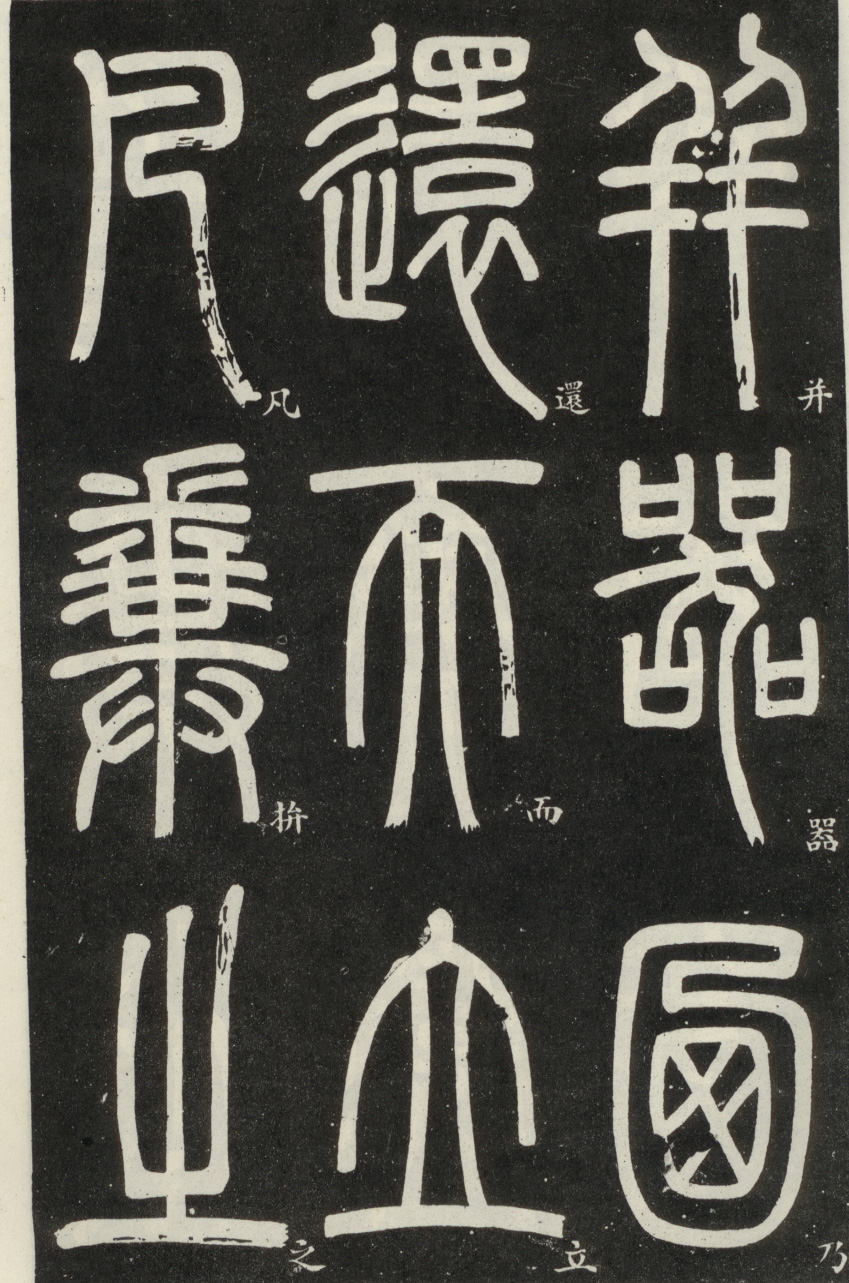 并器乃
還而立
凡拚之